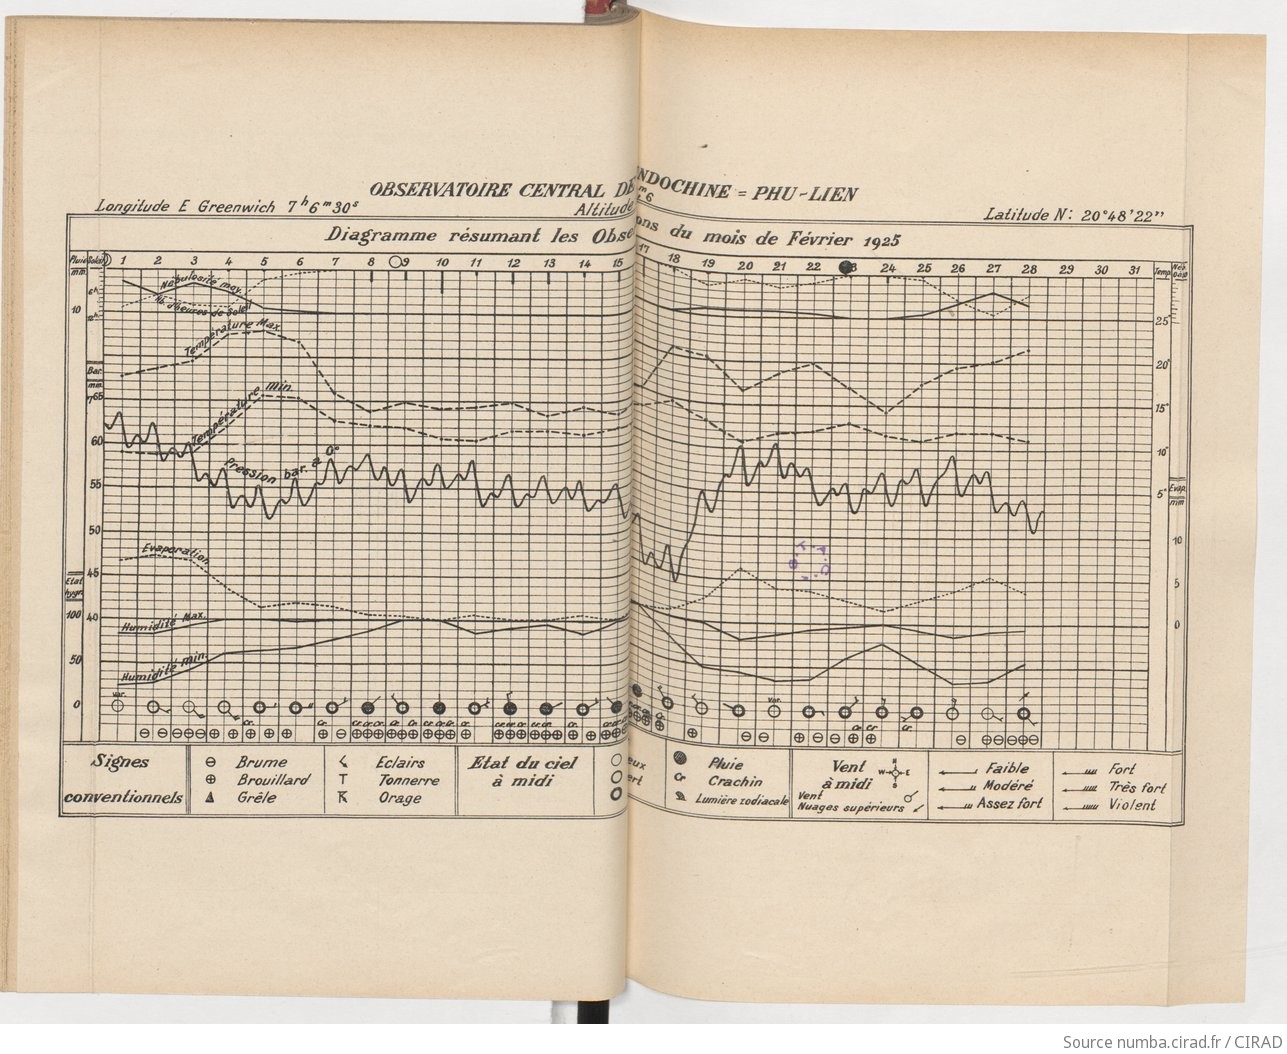 OBSERVATOIRE CENTRAL DE INDOCHINE = PHU-LIEN
Longitude E Greenwich 7h6m30s Altitude m6 Latitude N: 20°48'22"
Diagramme résumant les Obse ons du mois de Février 1925
Pluie Soleil 1 2 3 4 5 6 7 8 9 10 11 12 13 14 15 17 18 19 20 21 22 23 24 25 26 27 28 29 30 31 Temp.
mm.
Nébulosité moy.
Nb. d'heures de Soleil
10
Température Max.
25°
20°
Bar.
mm.
765
Température min.
15°
60
Pression bar. à 0°
10°
55
5°
Evap.
mm
50
10
Evaporation
45
5
Etat
hygr.
100
Humidité Max.
0
50
Humidité min.
var.
var.
0
Signes
conventionnels
Brume
Brouillard
Grêle
Eclairs
Tonnerre
Orage
Etat du ciel
à midi
eux
ert
Pluie
Cr Crachin
Lumière zodiacale
Vent
à midi
N
W E
S
Vent
Nuages supérieurs
Faible
Modéré
Assez fort
Fort
Très fort
Violent
Source numba.cirad.fr / CIRAD